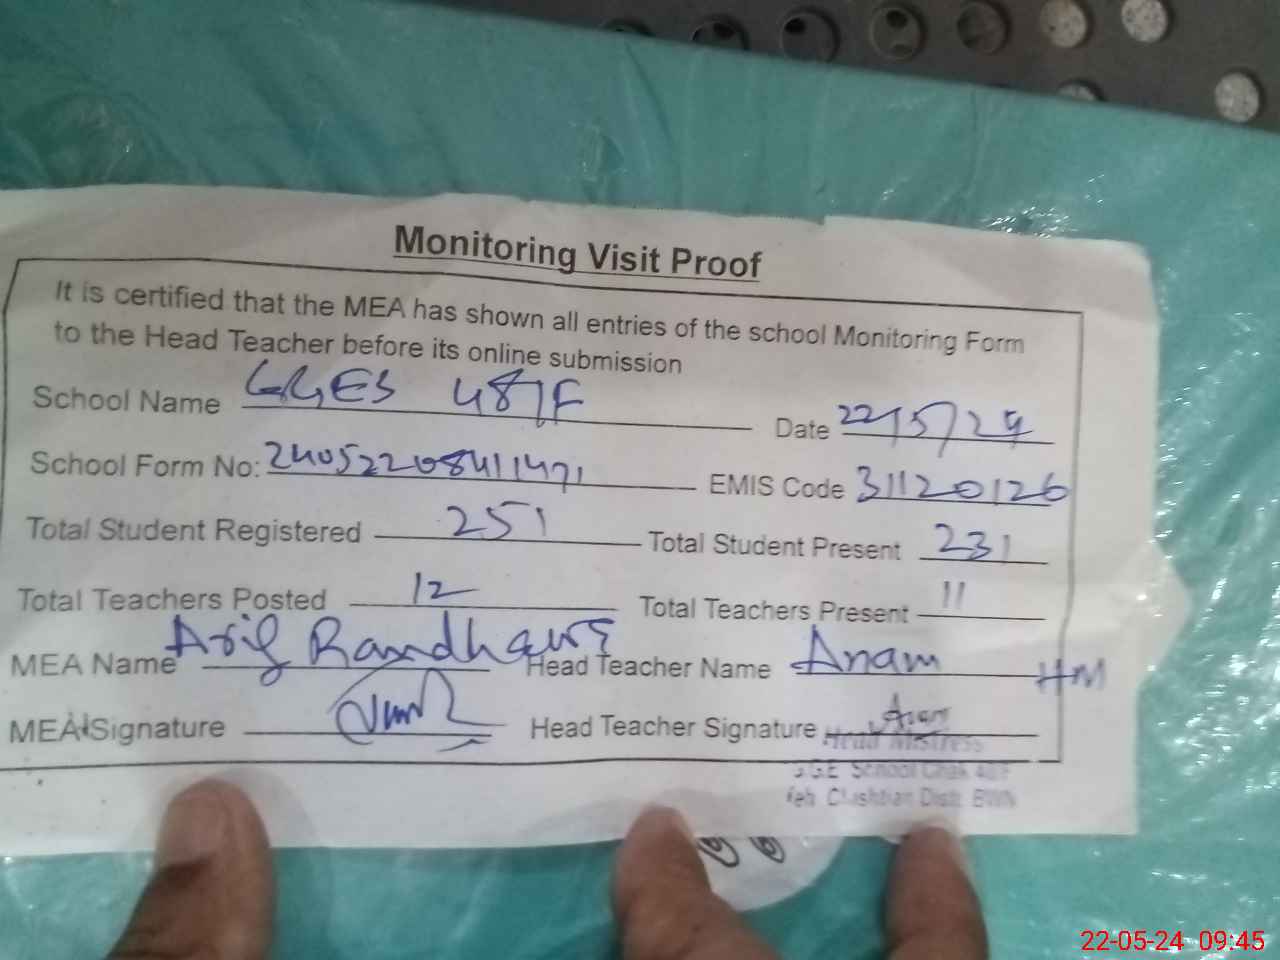 Monitoring Visit Proof
It is certified that the MEA has shown all entries of the school Monitoring Form
to the Head Teacher before its online submission
School Name GGES 48/F
Date 22/5/24
School Form No: 24052208411471
EMIS Code 31120126
Total Student Registered 251
Total Student Present 231
Total Teachers Posted 12
Total Teachers Present 11
MEA Name Arif Randhawa
Head Teacher Name Anam HM
MEA Signature
Head Teacher Signature Anam
Head Mistress
G.G.E School Chak 48/F
Teh. Chishtian Distt. BWN
22-05-24 09:45